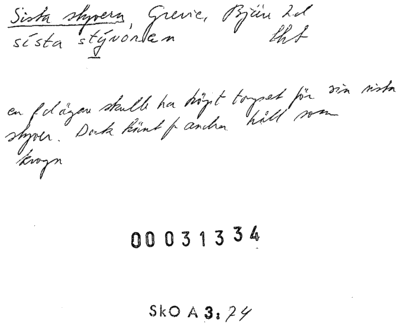 Sista styvern, Grevie, Bjäre hd
sista styvərn
en f d ägare skulle ha köpt torpet för sin sista
styver. Dock känt fr andra håll som
krogn
00031334
SkO A 3: 24